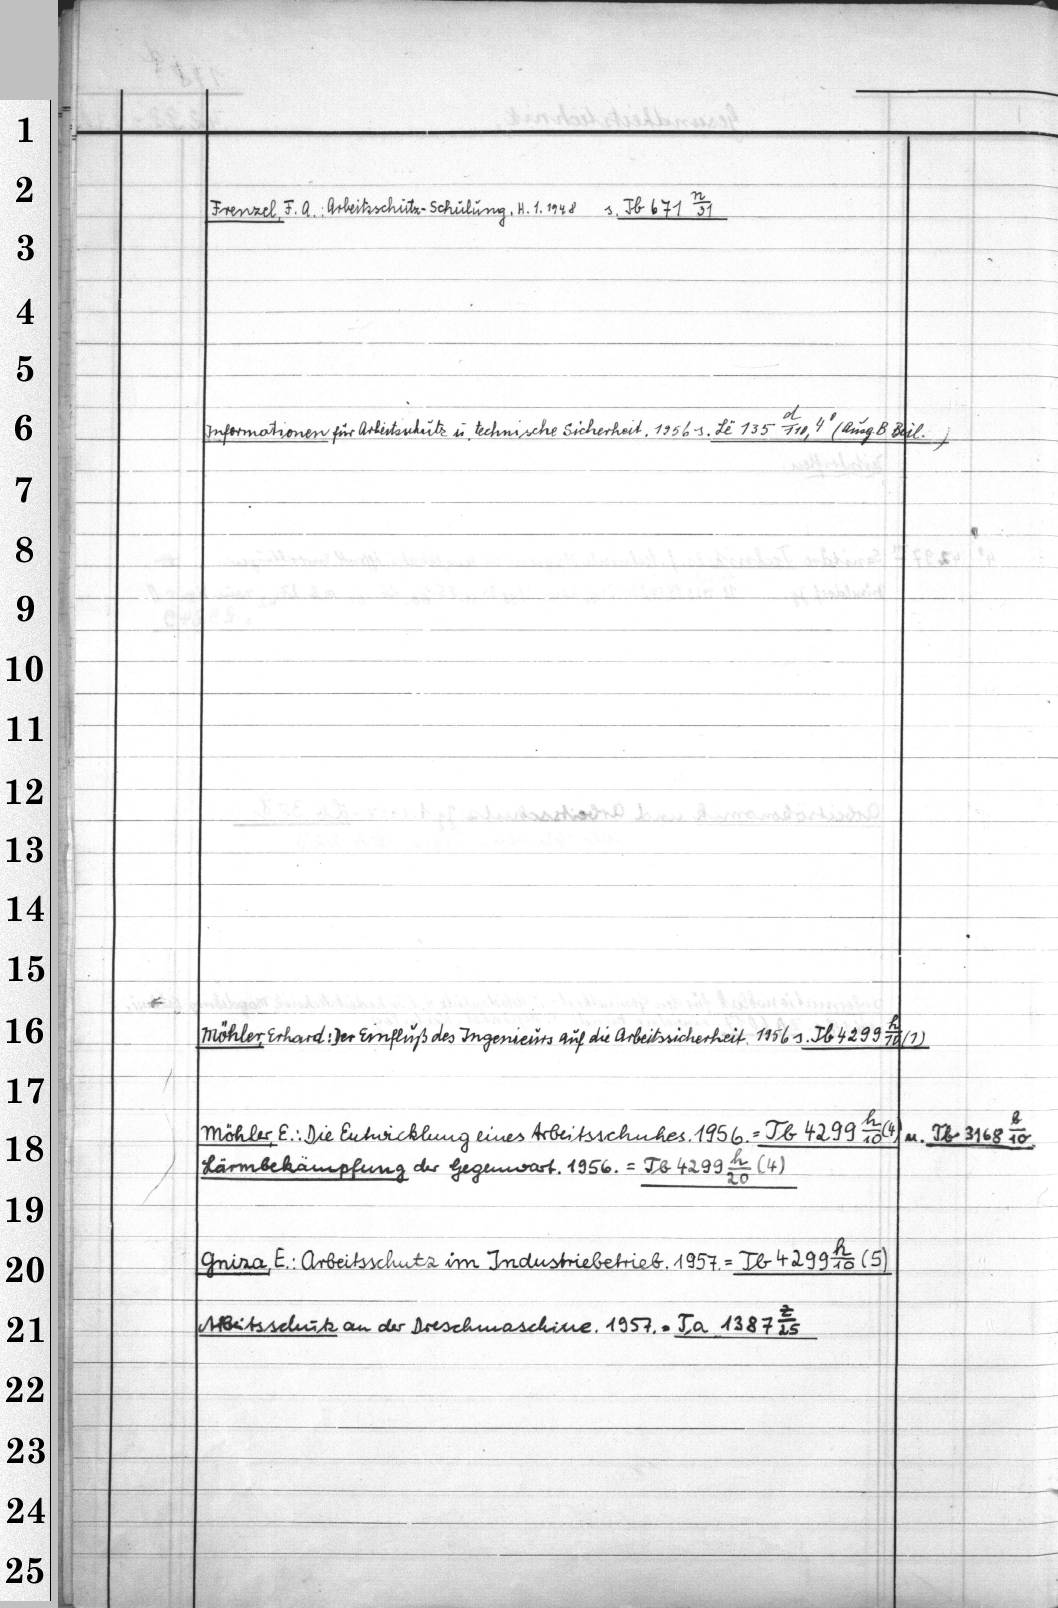 1
2
Frenzel, F. A.: Arbeitsschutz-Schulung. H. 1. 1948 s. Tb 671 n/31
3
4
5
6
Informationen für Arbeitsschutz u. technische Sicherheit. 1956 s. Lë 135 d/110, 4° (Ausg. B Beil.)
7
8
9
10
11
12
13
14
15
16
Möhler, Erhard: Der Einfluß des Ingenieurs auf die Arbeitssicherheit. 1956 s. Tb 4299 h/10 (1)
17
18
Möhler, E.: Die Entwicklung eines Arbeitsschuhes. 1956. = Tb 4299 h/10 (4) u. Tb 3168 k/10
Lärmbekämpfung der Gegenwart. 1956. = Tb 4299 h/20 (4)
19
20
Gniza, E.: Arbeitsschutz im Industriebetrieb. 1957. = Tb 4299 h/10 (5)
21
Arbeitsschutz an der Dreschmaschine. 1957. = Ta 1387 z/25
22
23
24
25